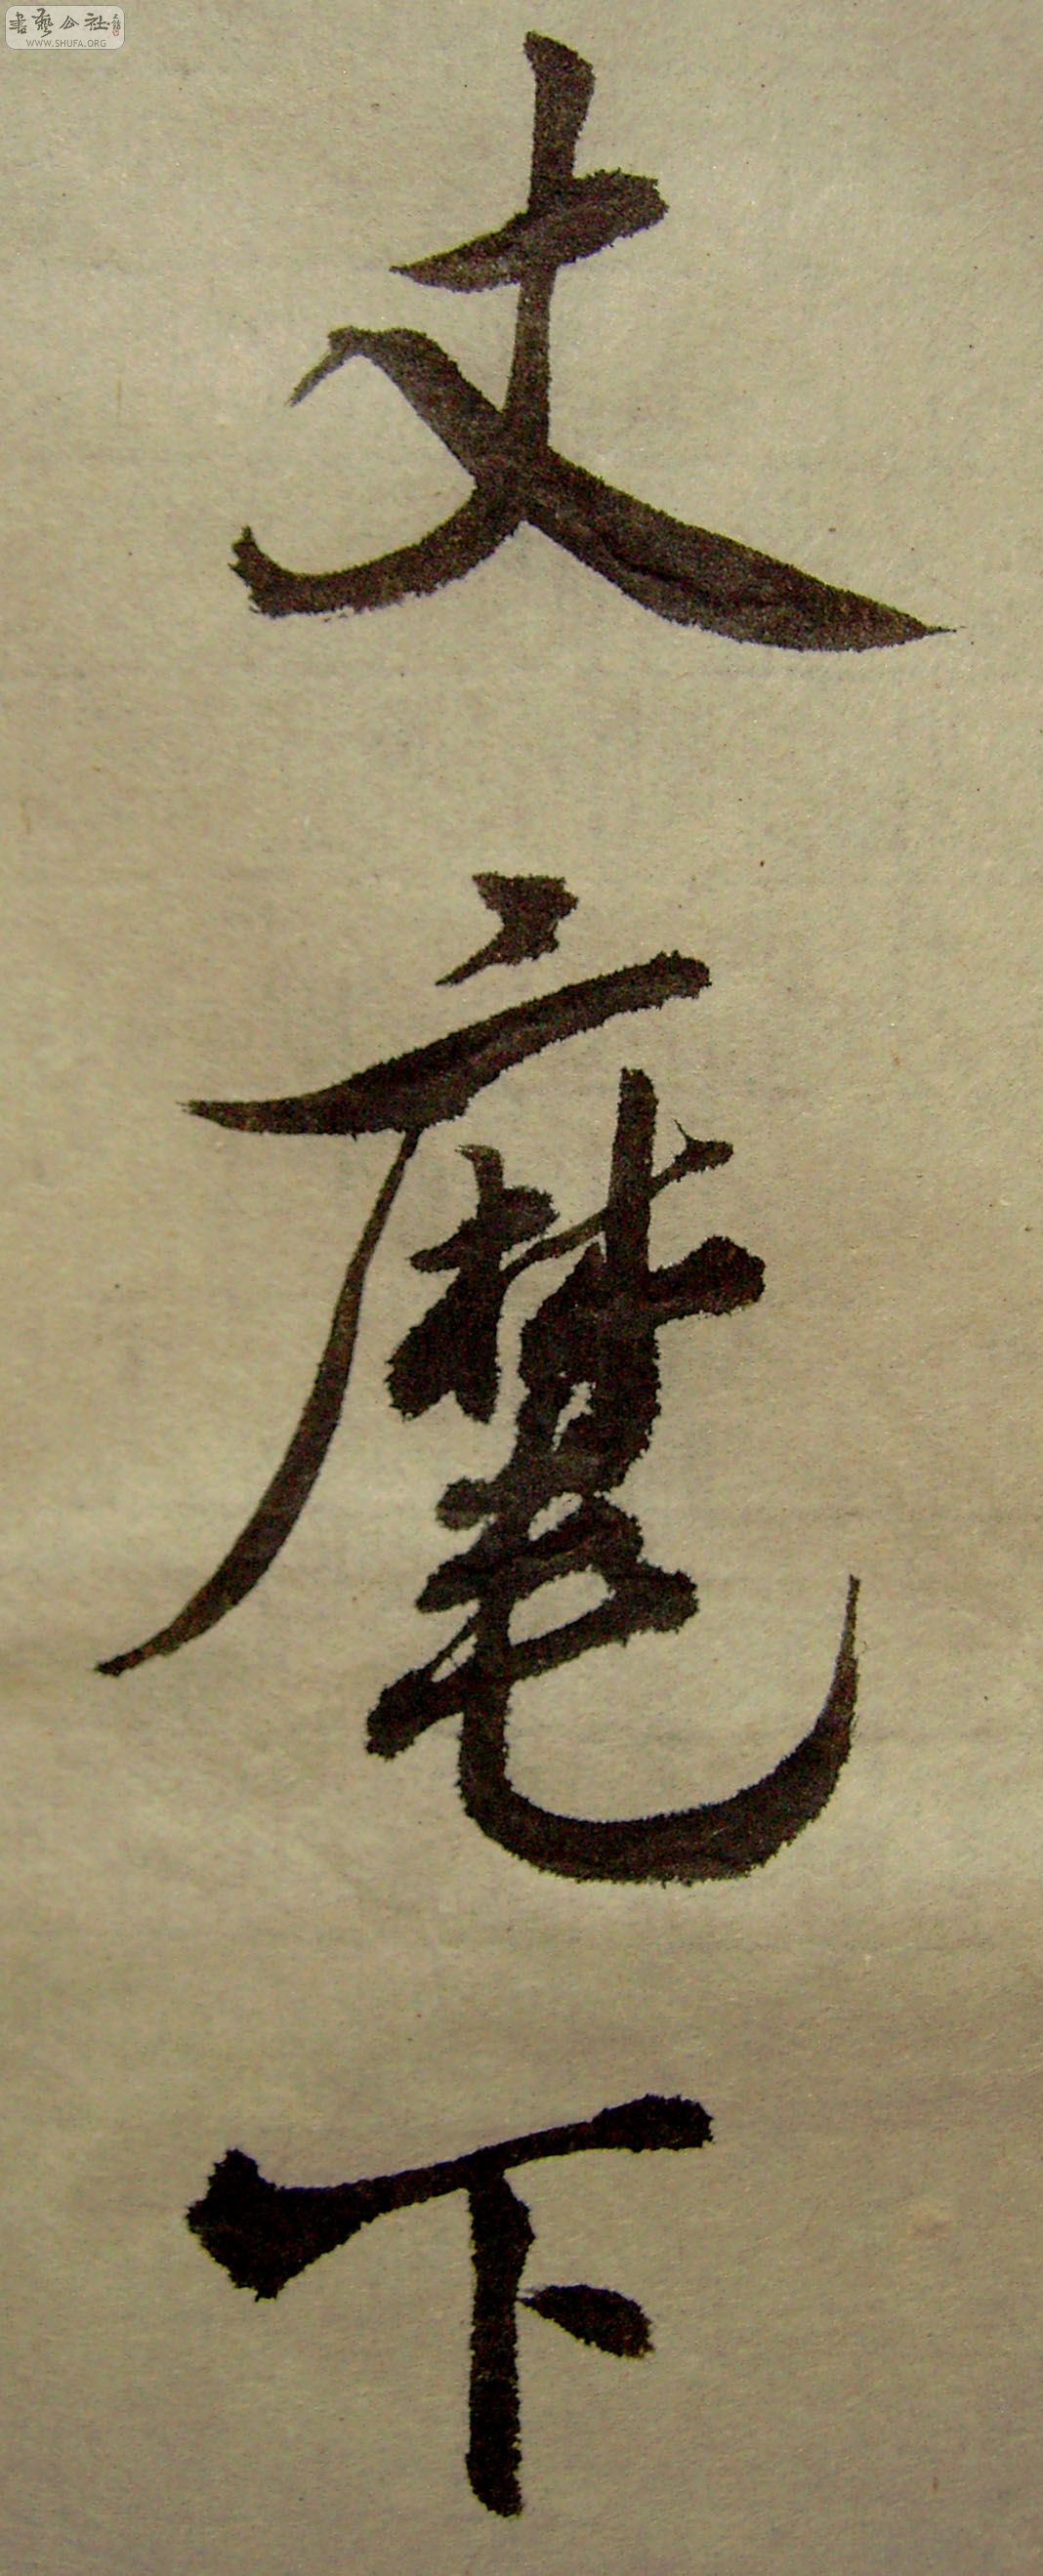 丈麾下
書藝公社
WWW.SHUFA.ORG